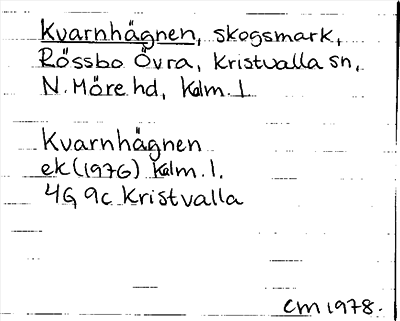 Kvarnhägnen, skogsmark,
Rössbo Övra, Kristvalla sn,
N. Möre hd, Kalm. l
Kvarnhägnen
ek (1976) Kalm. l.
4G 9c Kristvalla
CM 1978.